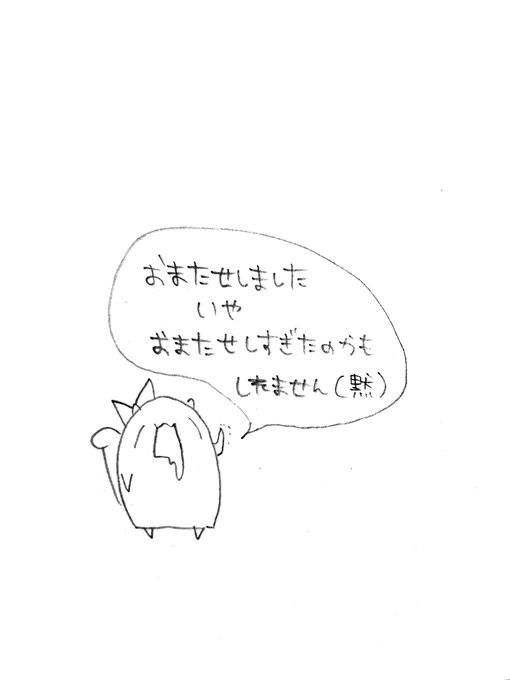 おまたせしました
いや
おまたせしすぎたのかも
しれません(黙)